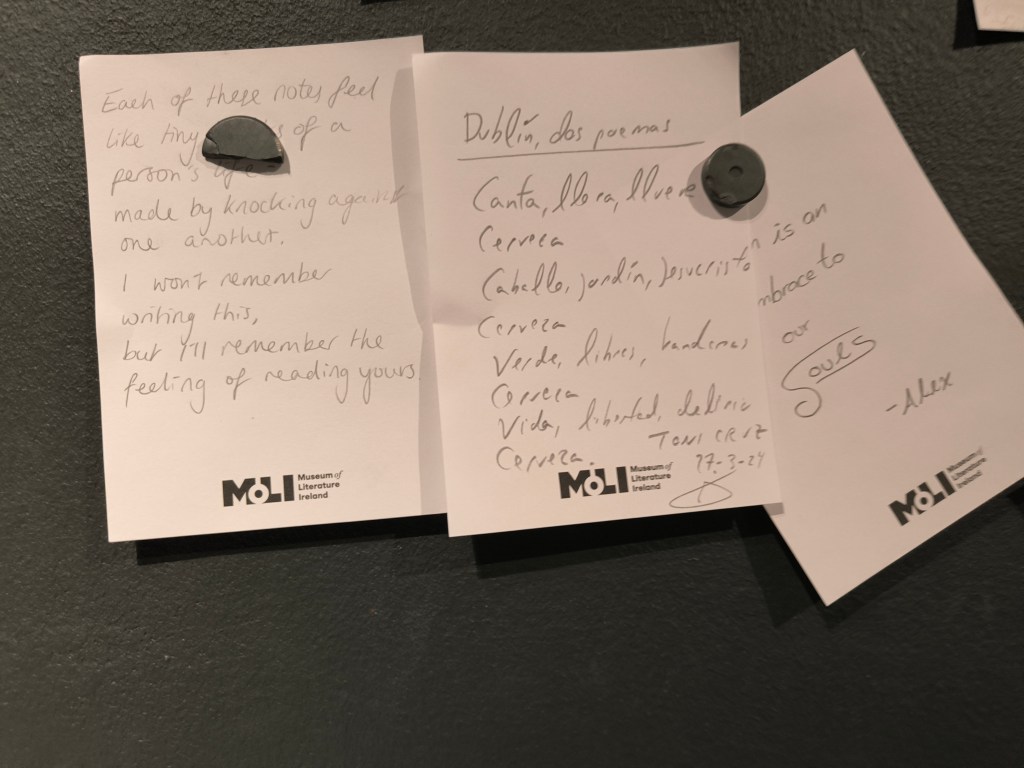 Each of these notes feel
like tiny of a
person's
made by knocking against
one another.
I won't remember
writing this,
but I'll remember the
feeling of reading yours
MOLI Museum of
Literature
Ireland
Dublín, dos poemas
Canta, llora, llueve
Cerveza
Caballo, jardín, Jesucristo
Cerveza
Verde, libres, banderas
Cerveza
Vida, libertad, delirio
Cerveza.
TONI CRUZ
27-3-24
MOLI Museum of
Literature
Ireland
is an
mbrace to
our
Souls
-Alex
MOLI Museum of
Literature
Ireland